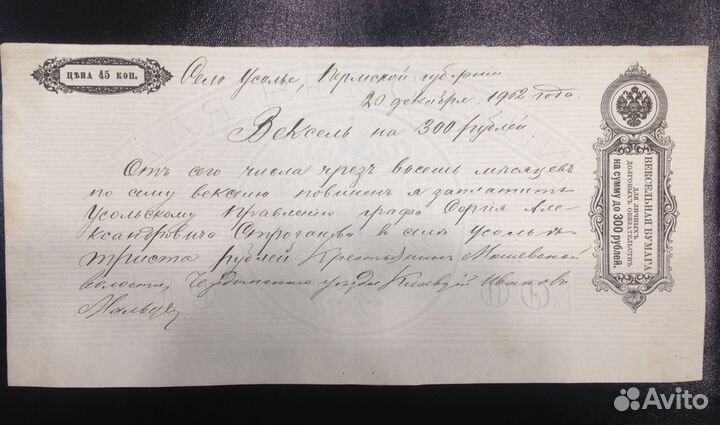 ЦѢНА 45 КОП.
Село Усолье, Пермской губернiи
20 декабря 1902 года.
Вексель на 300 рублей.
Отъ сего числа чрезъ восемь мѣсяцевъ
по сему векселю повиненъ я заплатить
Усольскому Правленiю графа Сергiя Але-
ксандровича Строганова въ селѣ Усольѣ
триста рублей. Крестьянинъ Мошевской
волости, Чердынскаго уѣзда Ивановъ
Мальцевъ
ВЕКСЕЛЬНАЯ БУМАГА
ДЛЯ ЛИЧНЫХЪ
ДОЛГОВЫХЪ ОБЯЗАТЕЛЬСТВЪ
на сумму до 300 рублей.
Avito